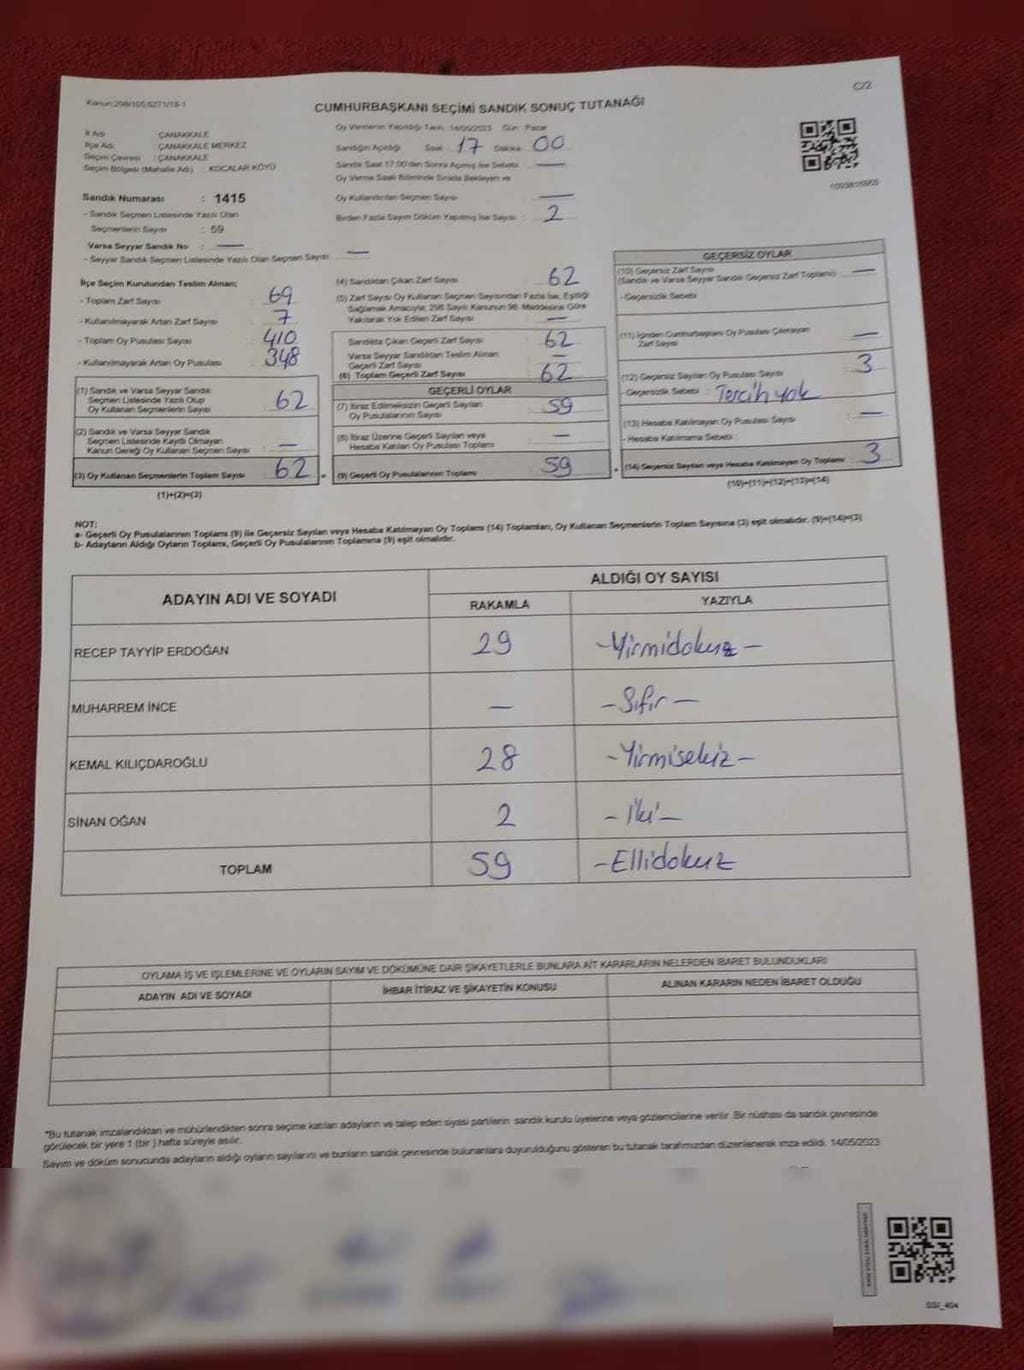 Kanun:298/105,6271/18-1
C/2
CUMHURBAŞKANI SEÇİMİ SANDIK SONUÇ TUTANAĞI
İl Adı : ÇANAKKALE
İlçe Adı : ÇANAKKALE MERKEZ
Seçim Çevresi : ÇANAKKALE
Seçim Bölgesi (Mahalle Adı) : KOCALAR KÖYÜ
Sandık Numarası : 1415
- Sandık Seçmen Listesinde Yazılı Olan
Seçmenlerin Sayısı : 59
Varsa Seyyar Sandık No : —
- Seyyar Sandık Seçmen Listesinde Yazılı Olan Seçmen Sayısı : —
Oy Vermenin Yapıldığı Tarih: 14/05/2023 Gün: Pazar
Sandığın Açıldığı Saat 17 Dakika 00
Sandık Saat 17:00'den Sonra Açılmış İse Sebebi : —
Oy Verme Saati Bitiminde Sırada Bekleyen ve
Oy Kullandırılan Seçmen Sayısı : —
Birden Fazla Sayım Döküm Yapılmış İse Sayısı : 2
İlçe Seçim Kurulundan Teslim Alınan;
- Toplam Zarf Sayısı : 69
- Kullanılmayarak Artan Zarf Sayısı : 7
- Toplam Oy Pusulası Sayısı : 410
- Kullanılmayarak Artan Oy Pusulası : 348
(1) Sandık ve Varsa Seyyar Sandık
Seçmen Listesinde Yazılı Olup
Oy Kullanan Seçmenlerin Sayısı : 62
(2) Sandık ve Varsa Seyyar Sandık
Seçmen Listesinde Kaydı Olmayan
Kanun Gereği Oy Kullanan Seçmen Sayısı : —
(3) Oy Kullanan Seçmenlerin Toplam Sayısı : 62
(1)+(2)=(3)
(4) Sandıktan Çıkan Zarf Sayısı : 62
(5) Zarf Sayısı Oy Kullanan Seçmen Sayısından Fazla İse, Eşitliği
Sağlamak Amacıyla, 298 Sayılı Kanunun 98. Maddesine Göre
Yakılarak Yok Edilen Zarf Sayısı : —
Sandıkta Çıkan Geçerli Zarf Sayısı : 62
Varsa Seyyar Sandıktan Teslim Alınan
Geçerli Zarf Sayısı : —
(6) Toplam Geçerli Zarf Sayısı : 62
GEÇERLİ OYLAR
(7) İtiraz Edilmeksizin Geçerli Sayılan
Oy Pusulalarının Sayısı : 59
(8) İtiraz Üzerine Geçerli Sayılan veya
Hesaba Katılan Oy Pusulası Toplamı : —
(9) Geçerli Oy Pusulalarının Toplamı : 59
GEÇERSİZ OYLAR
(10) Geçersiz Zarf Sayısı
(Sandık ve Varsa Seyyar Sandık Geçersiz Zarf Toplamı) : —
-Geçersizlik Sebebi :
(11) İçinden Cumhurbaşkanı Oy Pusulası Çıkmayan
Zarf Sayısı : —
(12) Geçersiz Sayılan Oy Pusulası Sayısı : 3
-Geçersizlik Sebebi : Tercih yok
(13) Hesaba Katılmayan Oy Pusulası Sayısı : —
- Hesaba Katılmama Sebebi :
(14) Geçersiz Sayılan veya Hesaba Katılmayan Oy Toplamı : 3
(10)+(11)+(12)+(13)=(14)
NOT:
a- Geçerli Oy Pusulalarının Toplamı (9) ile Geçersiz Sayılan veya Hesaba Katılmayan Oy Toplamı (14) Toplamları, Oy Kullanan Seçmenlerin Toplam Sayısına (3) eşit olmalıdır. (9)+(14)=(3)
b- Adayların Aldığı Oyların Toplamı, Geçerli Oy Pusulalarının Toplamına (9) eşit olmalıdır.
ADAYIN ADI VE SOYADI
ALDIĞI OY SAYISI
RAKAMLA YAZIYLA
RECEP TAYYİP ERDOĞAN 29 -Yirmidokuz-
MUHARREM İNCE — -Sıfır-
KEMAL KILIÇDAROĞLU 28 -Yirmisekiz-
SİNAN OĞAN 2 -İki-
TOPLAM 59 -Ellidokuz
OYLAMA İŞ VE İŞLEMLERİNE VE OYLARIN SAYIM VE DÖKÜMÜNE DAİR ŞİKAYETLERLE BUNLARA AİT KARARLARIN NELERDEN İBARET BULUNDUKLARI
ADAYIN ADI VE SOYADI İHBAR İTİRAZ VE ŞİKAYETİN KONUSU ALINAN KARARIN NEDEN İBARET OLDUĞU
*Bu tutanak imzalandıktan ve mühürlendikten sonra seçime katılan adayların ve talep eden siyasi partilerin sandık kurulu üyelerine veya gözlemcilerine verilir. Bir nüshası da sandık çevresinde
görülecek bir yere 1 (bir) hafta süreyle asılır.
Sayım ve döküm sonucunda adayların aldığı oyların sayılarını ve bunların sandık çevresinde bulunanlara duyurulduğunu gösteren bu tutanak tarafımızdan düzenlenerek imza edildi. 14/05/2023
SSI_404